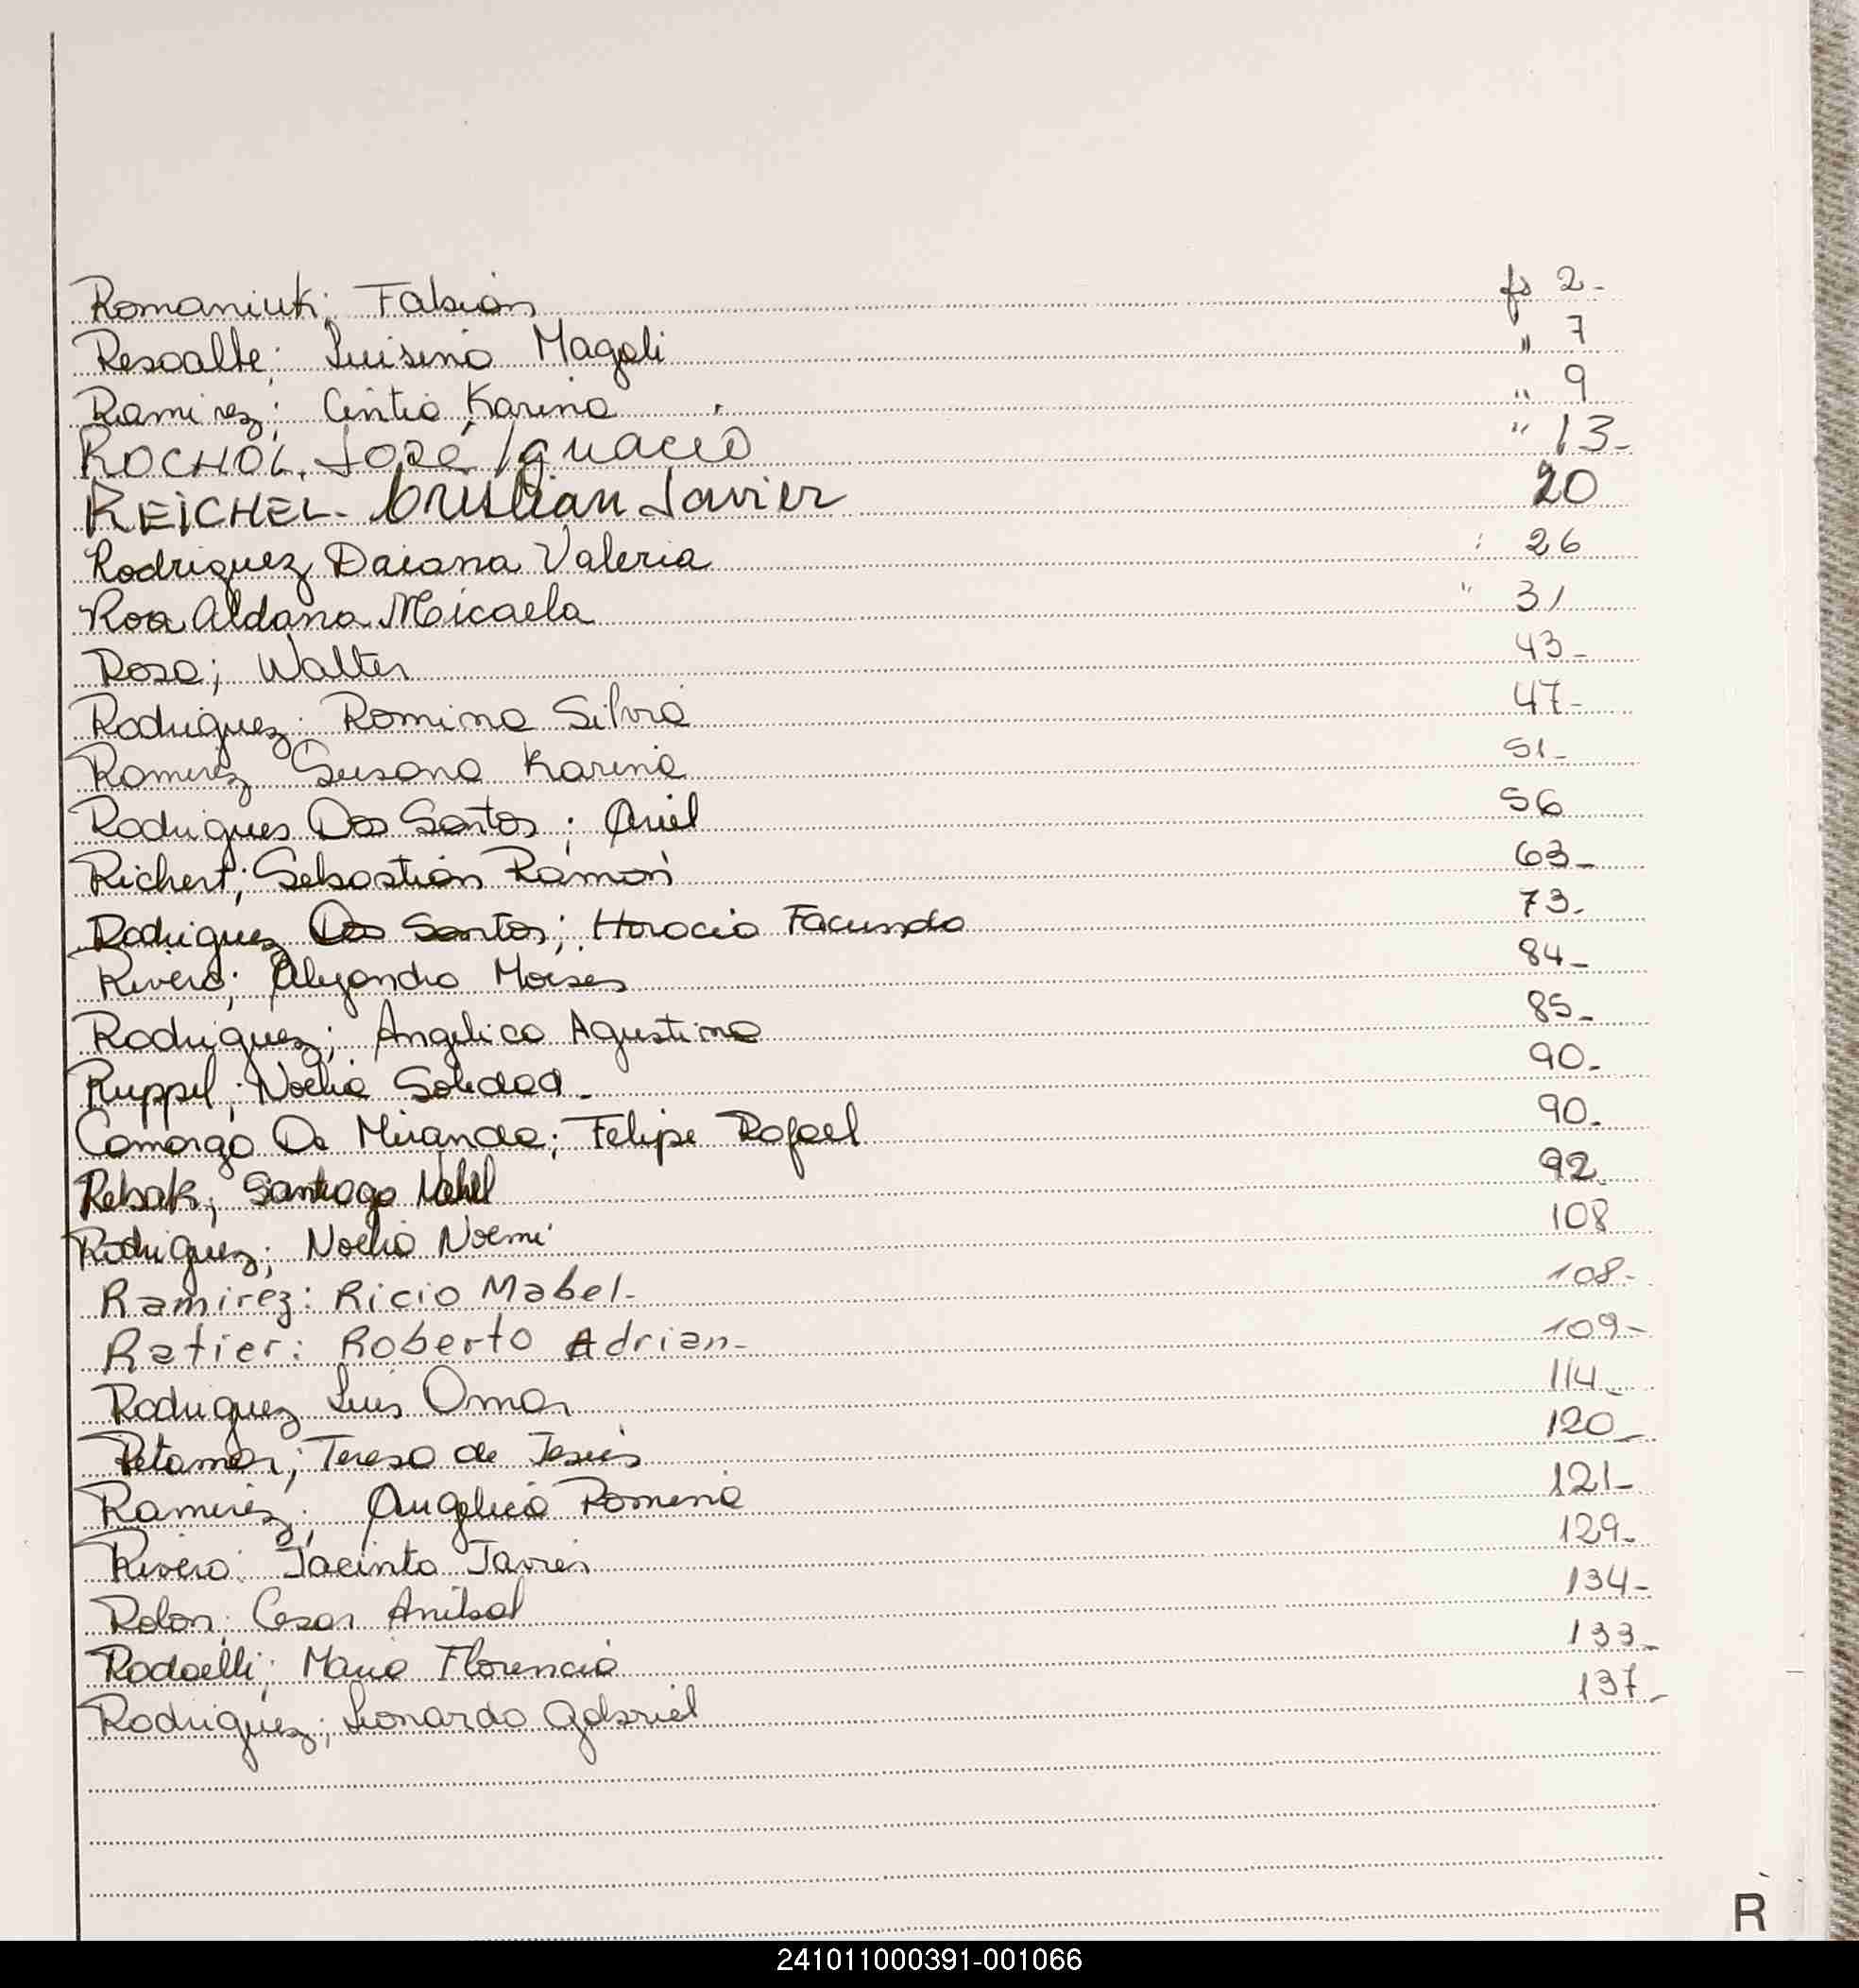 Romaniuk; Fabián fs 2-
Resoalbe; Luisina Magali " 7
Ramirez; Cintia Karina " 9
ROCHOL. José Ignacio " 13-
REICHEL- Cristian Javier 20
Rodriguez Daiana Valeria : 26
Roa Aldana Micaela " 31
Rosa; Walter 43-
Rodriguez; Romina Silvia 47-
Ramirez Susana Karina 51-
Rodrigues Dos Santos; Ariel 56
Richert; Sebastián Ramón 63-
Rodriguez Dos Santos; Horacio Facundo 73-
Rivero; Alejandro Moises 84-
Rodriguez; Angelica Agustina 85-
Ruppel; Noelia Soledad- 90-
Camargo Da Miranda; Felipe Rafael 90-
Rebak; Santiago Nahel 92
Rodriguez; Noelia Noemi 108
Ramirez: Ricio Mabel- 108-
Ratier: Roberto Adrian- 109-
Rodriguez Luis Omar 114-
Retamar; Teresa de Jesús 120-
Ramirez; Angelica Romina 121-
Rivero: Jacinto Javier 129-
Rolon; Cesar Anibal 134-
Rodaelli; Maria Florencia 133-
Rodriguez; Leonardo Gabriel 137-
R
241011000391-001066